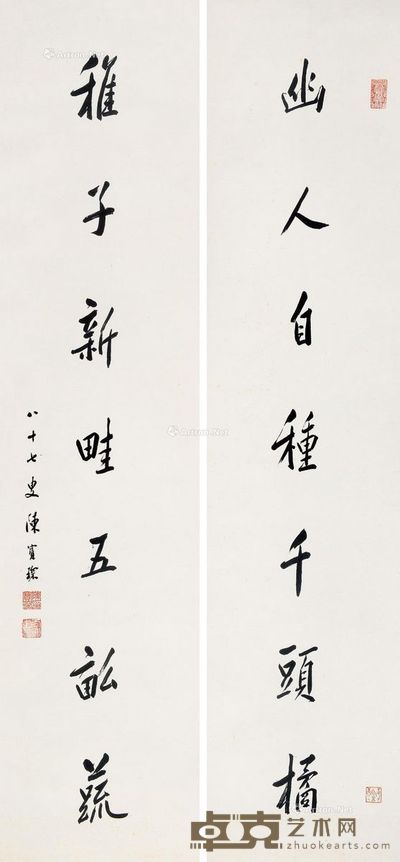 幽人自種千頭橘
稚子新畦五畝蔬
八十七叟陳寶琛
Artron.Net
卓克艺术网
www.zhuokearts.com